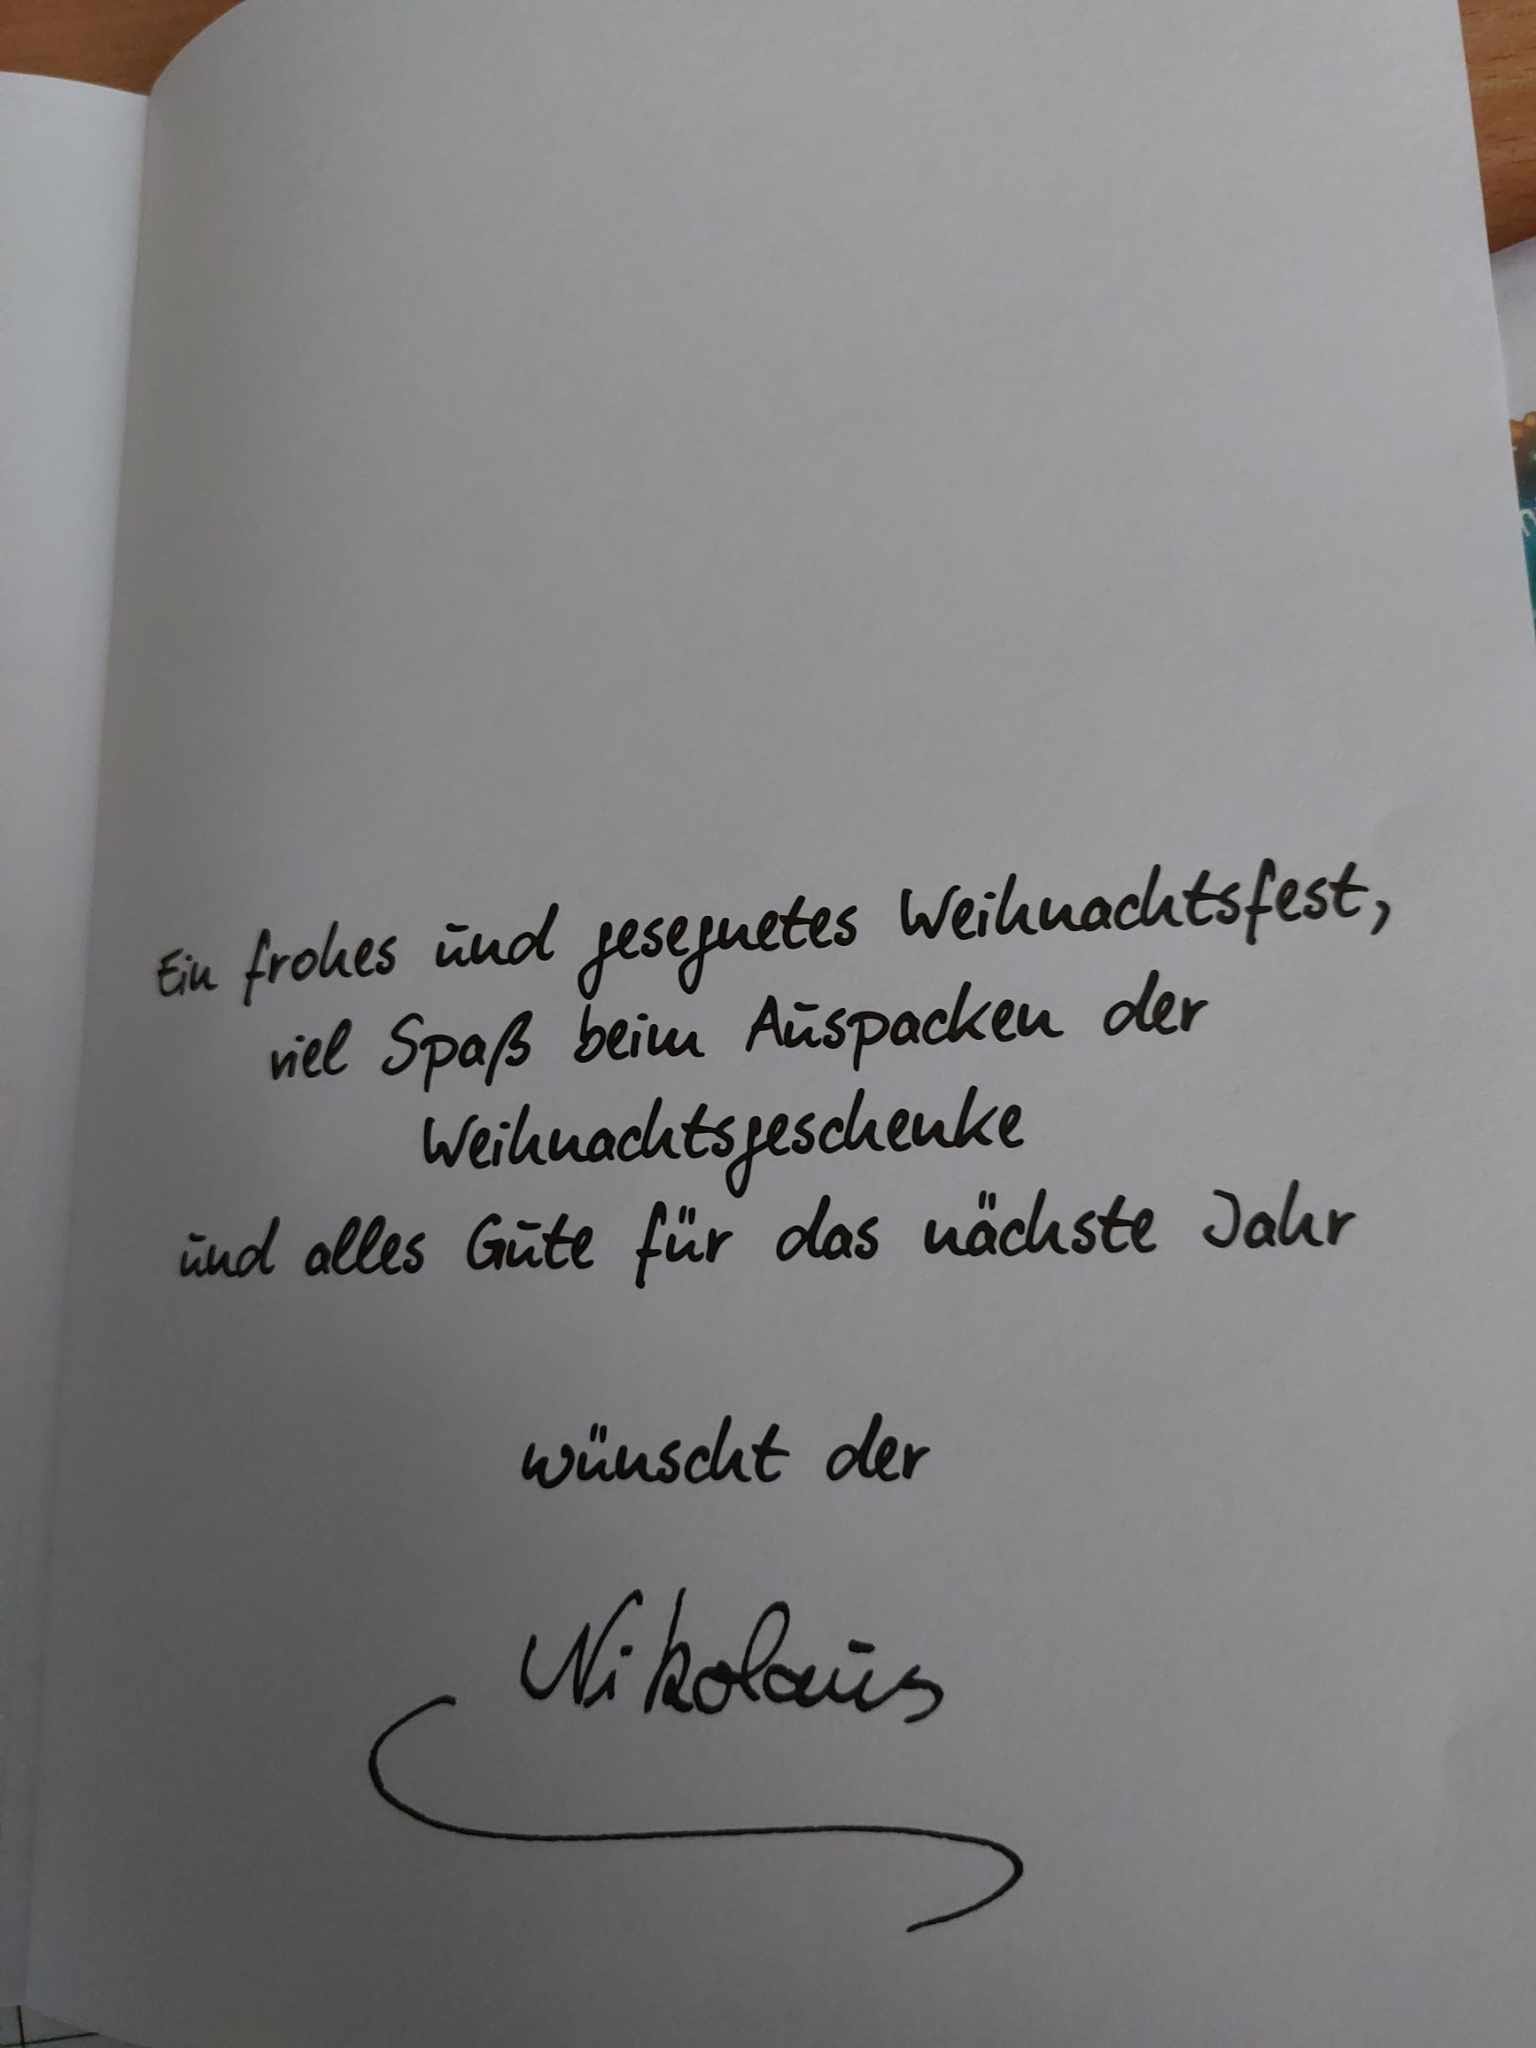 Ein frohes und gesegnetes Weihnachtsfest,
viel Spaß beim Auspacken der
Weihnachtsgeschenke
und alles Gute für das nächste Jahr
wünscht der
Nikolaus